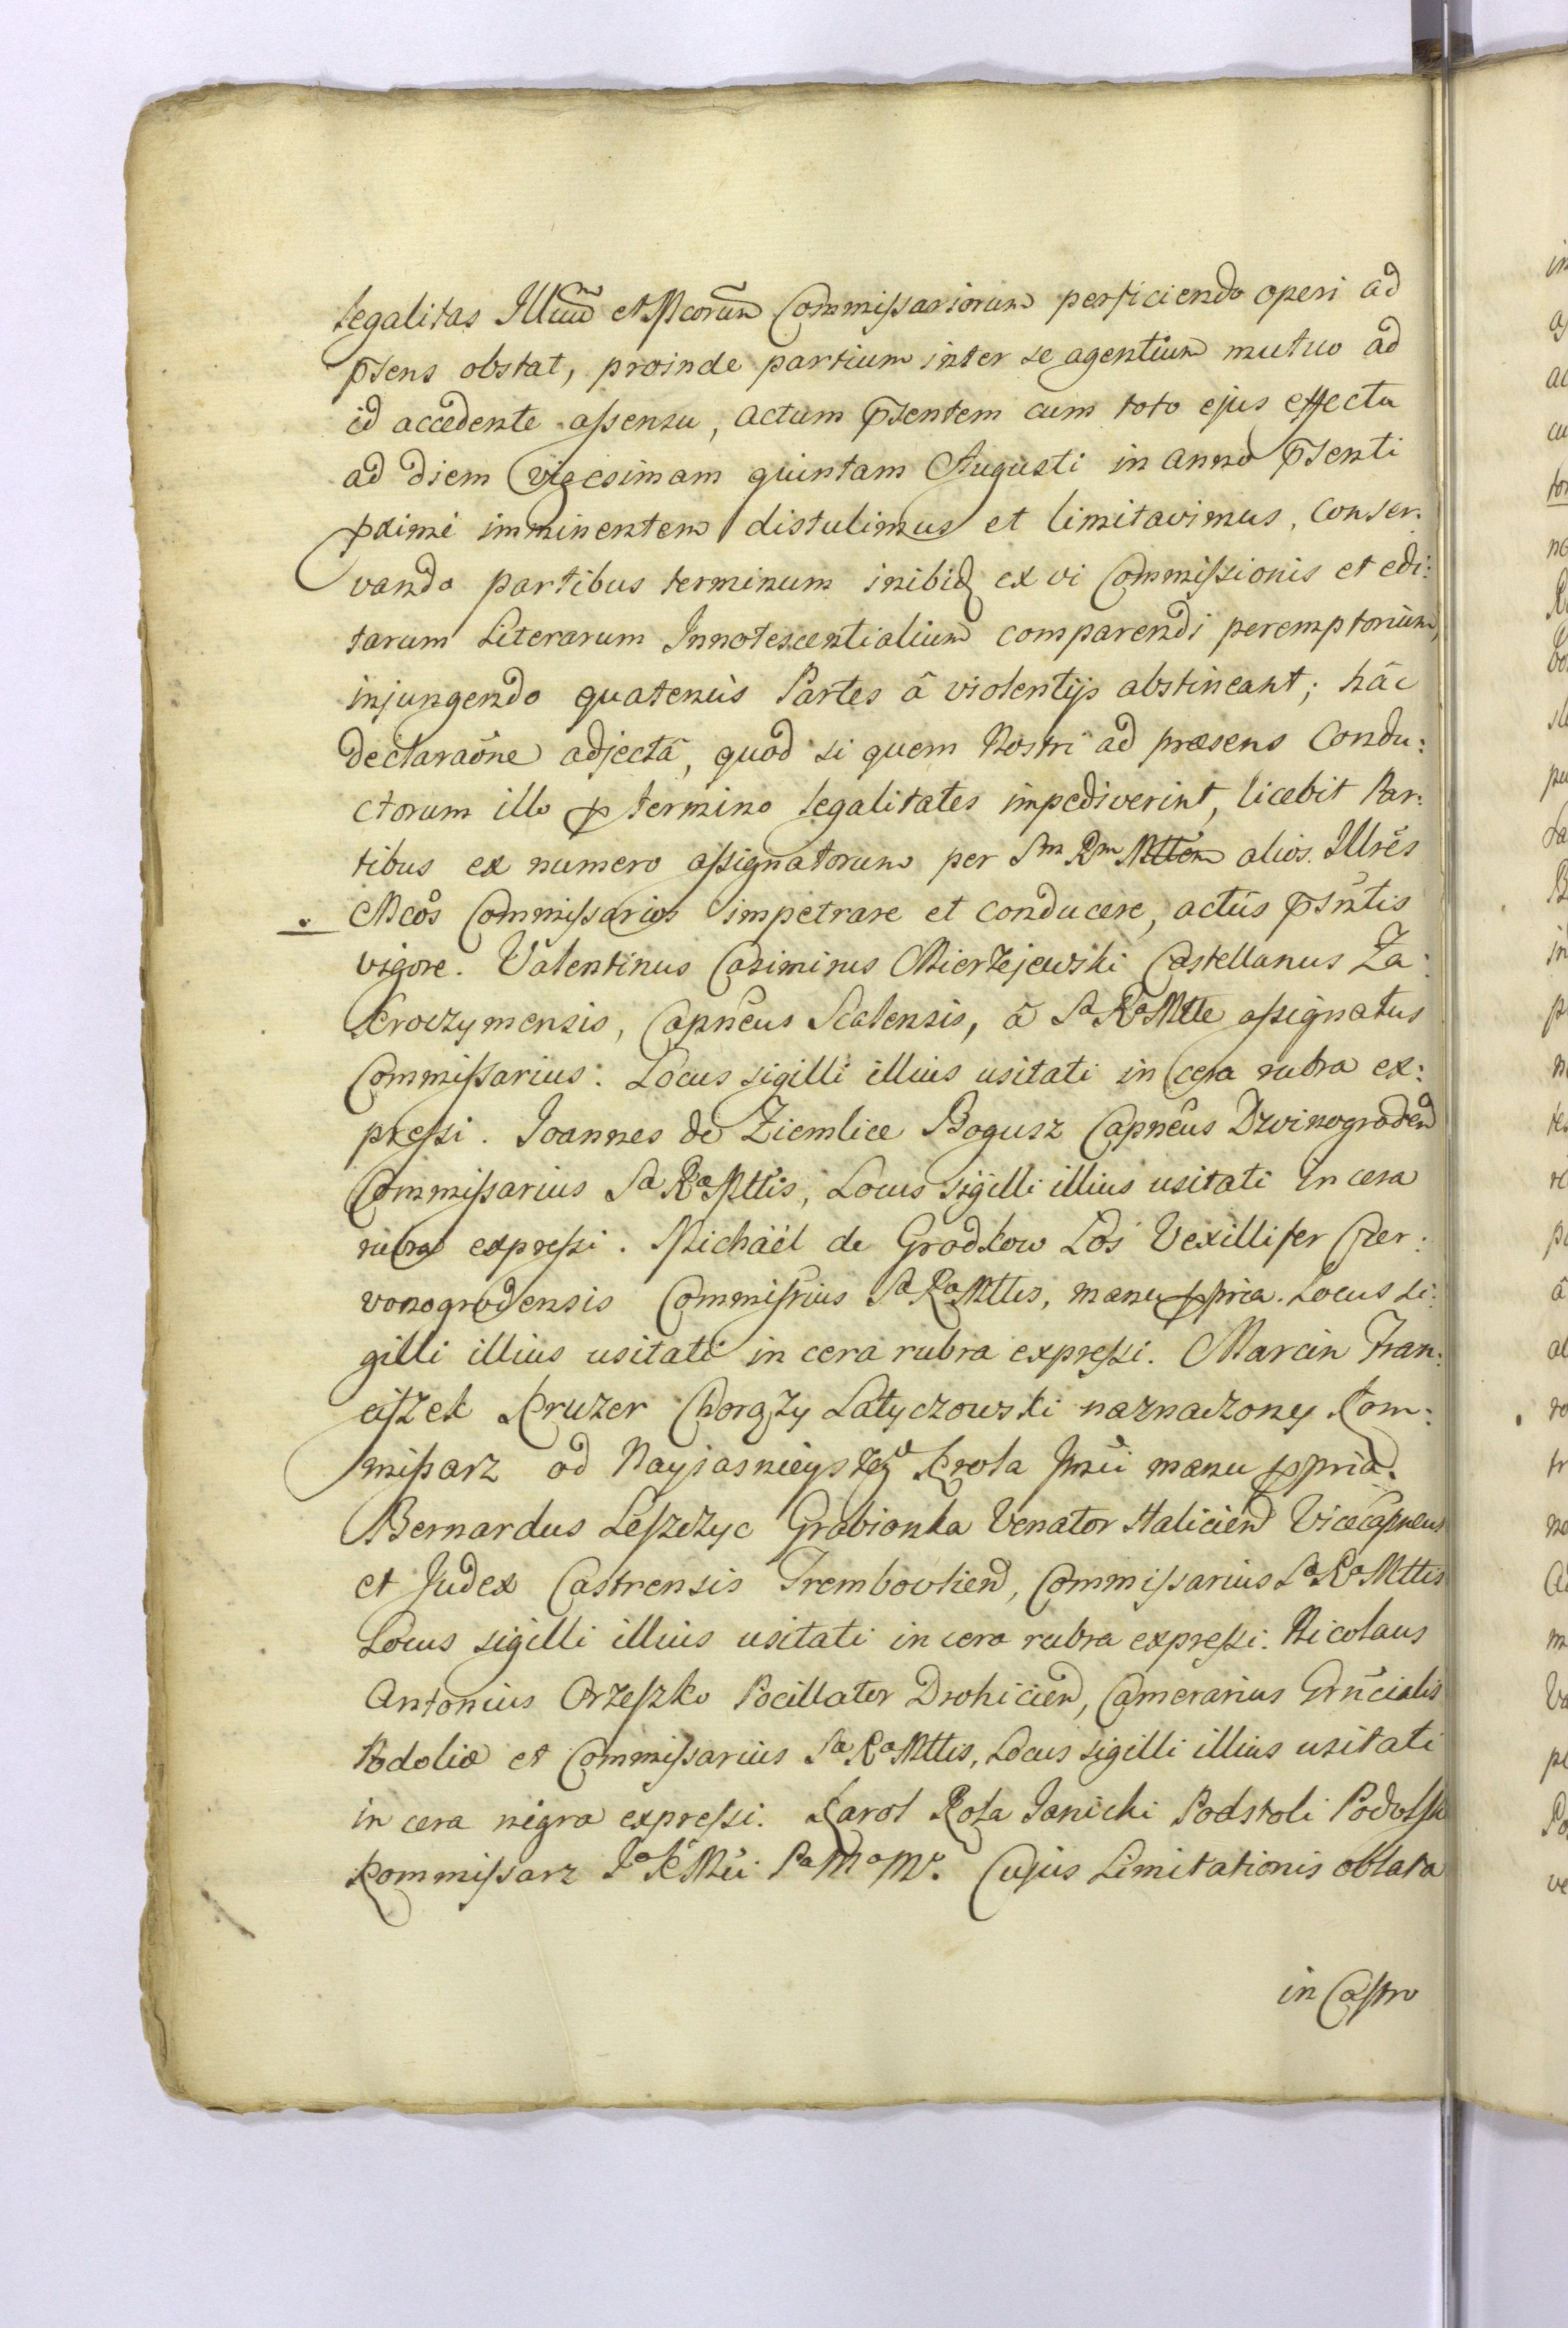 legalitas Illuum et Mcorum Commissariorum perficiendo operi ad
p̄sens obstat, proinde partium inter se agentium mutuo ad
id accedente assensu, actum p̄sentem cum toto ejus effectu
ad diem vigesimam quintam Augusti in anno p̄senti
pximè imminentem distulimus et limitavimus, conser:
vando partibus terminum inibiq ex vi Commissionis et edi:
tarum Literarum Innotescentialium comparendi peremptorium,
injungendo quatenùs Partes â violentijs abstineant; hâc
declaraõne adjectâ, quod si quem Nostri ad præsens Condu:
ctorum illo p termino legalitates impediverint, licebit Par:
tibus ex numero assignatorum per Sm Rm Mttem alios Illrēs
Mcos Commissarios impetrare et conducere, actûs p̄sñtis
vigore. Valentinus Casimirus Mierzejewski Castellanus Za:
kroczymensis, Capneus Scalensis, â Sa Ra Mtte assignatus
Commissarius: Locus sigilli illius usitati in cera rubra ex:
pressi. Joannes de Ziemlice Bogusz Capneus Dzwinogroden
Commissarius Sa Ra Mttis, Locus sigilli illius usitati in cera
rubra expressi. Michäel de Grodkow Łoś Vexillifer Czer:
vonogrodensis Commissrius Sa Ra Mttis, manu ppria. Locus si:
gilli illius usitati in cera rubra expressi. Marcin Fran:
ciszek Kruzer Chorąży Latyczowski naznaczony Kom:
missarz od Nayjasnieyszego Krola Jmči manu ppria.
Bernardus Leszczyc Grabianka Venator Halicien Vicecapneus
et Judex Castrensis Trembovlien, Commissarius Sa Ra Mttis
Locus sigilli illius usitati in cera rubra expressi. Nicolaus
Antonius Orzeszko Pocillator Drohicien, Camerarius Grñcialis
Podoliæ et Commissarius Sa Ra Mttis, Locus sigilli illius usitati
in cera nigra expressi. Karol Rola Janicki Podstoli Podolski
Kommissarz Jo K Mči Pa Ma Mp. Cujus Limitationis oblata
in Castro